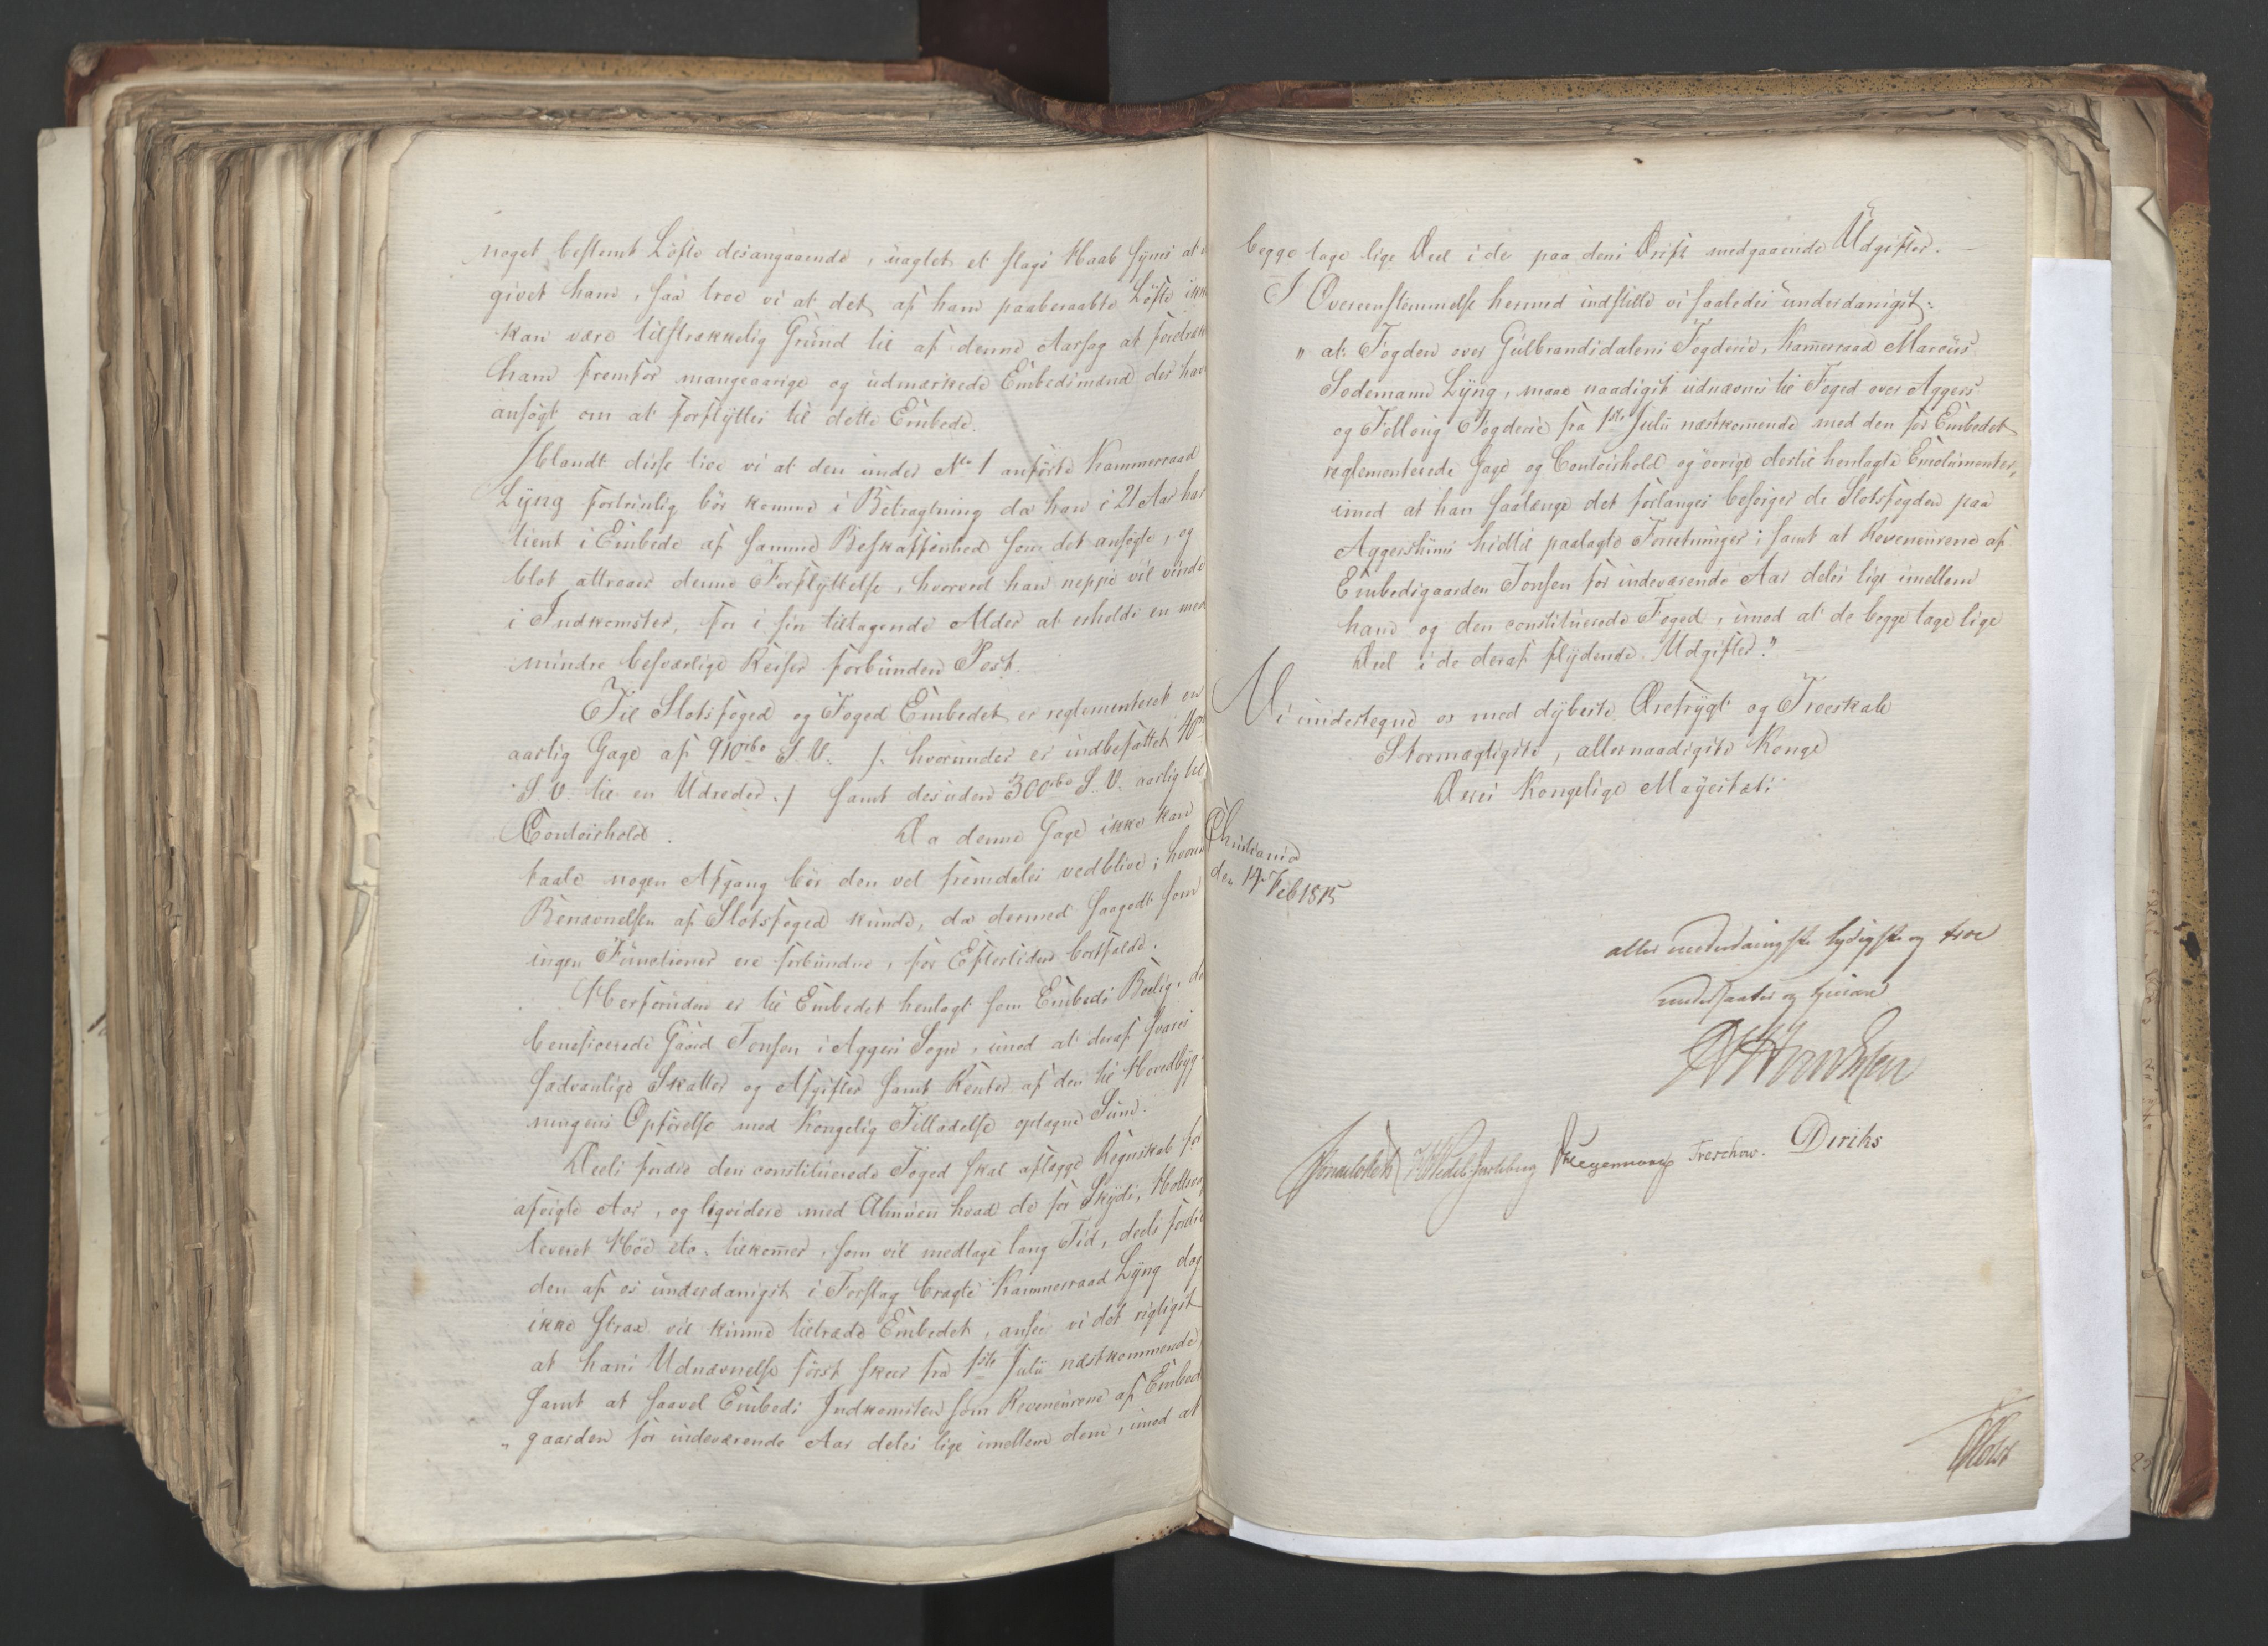 noget bestemt Löfte desangaaende, uagtet et slags Haab synes at
givet ham, saa troe vi at det af ham paaberaabte Löfte ikke
kan være tilstrækkelig Grund til af denne Aarsag at foretrække
ham fremfor mangeaarige og udmærkede Embedsmænd der have
ansögt om at forflyttes til dette Embede.
Iblandt disse troe vi at den under No 1 anförte Kammerraad
Lyng fortrinlig bör komme i Betragtning da han i 21 Aar har
tient i Embede af samme Beskaffenhed som det ansögte, og
blot attraaer denne Forflyttelse, hvorved han neppe vil vinde
i Indkomster, for i sin tiltagende Alder at erholde en med
mindre besværlige Reiser forbunden Post.
Til Slotsfoged og Foged Embedet er reglementeret en
aarlig Gage af 910 rbd S.V. /: hvorunder er indbefattet 40
S.V. til en Udreder :/ samt desuden 300 rbd S.V. aarlig til
Contoirhold. Da denne Gage ikke kan
taale nogen Afgang bör den vel fremdeles vedblive; hvorimod
Benævnelsen af Slotsfoged kunde, da dermed saagodt som
ingen Functioner ere forbundne, for Eftertiden bortfalde.
Herforuden er til Embedet henlagt som Embeds Bolig, den
beneficerede Gaard Tonsen i Aggers Sogn, imod at deraf svares
sædvanlige Skatter og Afgifter samt Renter af den til Hovedbyg-
ningens Opförelse med Kongelig Tilladelse optagne Sum.
Deels fordie den constituerede Foged skal aflægge Regnskab for
afvigte Aar, og liqvidere med Almuen hvad de for Skyds,
leveret Höe etc. tilkommer, som vil medtage lang Tid, deels fordie
den af os underdanigst i Forslag bragte Kammerraad Lyng dog
ikke strax vil kunne tiltræde Embedet, ansee vi det rigtigst
at hans Udnævnelse först skeer fra 1ste Julii næstkommende
samt at saavel Embeds Indkomsten som Revenuerne af Embeds
gaarden for indeværende Aar deles lige imellem dem, imod at
begge tage lige Deel i de paa dens Drift medgaaende Udgifter.
I Overeensstemmelse hermed indstille vi saaledes underdanigst:
" at Fogden over Gulbrandsdalens Fogderie, Kammerraad Marcus
Sodemann Lyng, maae naadigst udnævnes til Foged over Aggers
og Folloug Fogderie fra 1ste Julii næstkommende med den for Embedet
reglementerede Gage og Contoirhold og övrige dertil henlagte Emolumenter,
imod at han saalænge det forlanges besörger de Slotsfogden paa
Aggershuus hidtil paalagte Forretninger; samt at Revenuerne af
Embedsgaarden Tonsen for indeværende Aar deles lige imellem
ham og den constituerede Foged, imod at de begge tage lige
Deel i de deraf flydende Udgifter."
Vi undertegne os med dybeste Ærefrygt og Troeskab
Stormægtigste, allernaadigste Konge
Deres Kongelige Mayestæts
Christiania
den 14 Feb 1815
aller underdanigste lydigste og troe
undersaatter og tjenere
Sommerhielm HWedel-Jarlsberg Treschow. Diriks
Holst